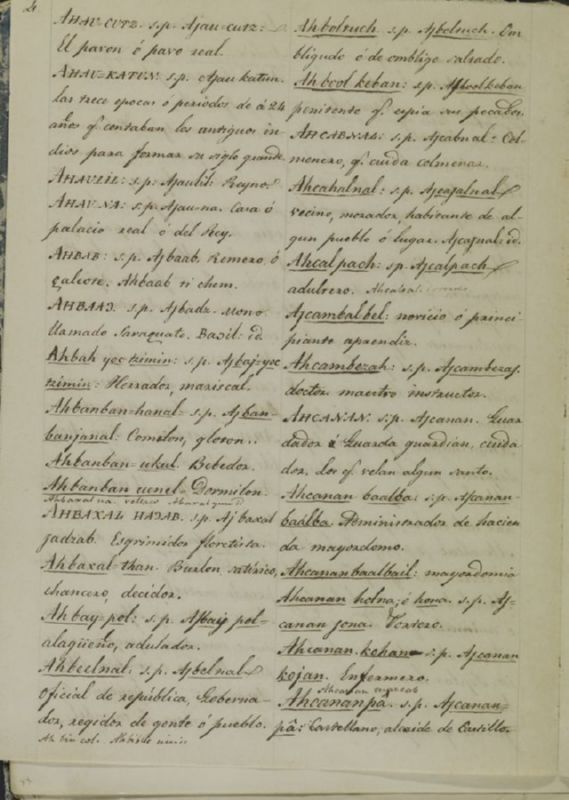 AHAU-CUTZ. s.p. Ajau-cutz:
El pavon ó pavo real.
AHAU-KATUN. s.p. Ajau katun.
las trece epocas ó periodos de á 24
años q. contaban los antiguos in-
dios para formar su siglo grande.
AHAULIL: s.p: Ajaulil: Reyno.
AHAU NA: s.p. Ajau-na. Casa ó
palacio real ó del Rey.
AHBAB: s.p. Ajbaab. Remero, ó
Ahbaab ti chem.
AHBAAƆ. s.p. Ajbadz. Mono
llamado Saraguato. Baɔil: id
Ahbah yoc tzimin: s.p. Ajbaj-yoc
tzimin: Herrador, mariscal.
Ahbanban-hanal= s.p. Ajban-
banjanal: Comilon, gloton..
Ahbanban-ukul. Bebedor.
Ahbanban uenel= Dormilon.
AHBAXAL HAƆAB. s.p. Aj baxal
jadzab. Esgrimidor floretista.
Ahbaxal-than. Burlon, satírico,
chancero, decidor.
Ah bay-pol: s.p. Ajbay pol-
alagüeño, adulador.
Ahbeelnal: s.p. Ajbelnal
oficial de república, Goberna-
dor, regidor de gente ó pueblo.
Ahboltuch s.p. Ajboltuch. Om
bligudo ó de ombligo saltado.
Ah bool keban: s.p. Ajboolkeban
penitente q. espia sus pecados.
AHCABNAL: s.p. Ajcabnal: Col-
menero, q. cuida colmenas.
Ahcahalnal: s.p. Ajcajalnal
vecino, morador, habitante de al-
gun pueblo ó lugar. Ajcajnal: id.
Ahcalpach: s.p. Ajcalpach
adultero.
Ajcambalbel: novicio ó princi
piante aprendiz.
Ahcambezah: s.p. Ajcambezaj.
doctor maestro instructor.
AHCANAN: s.p. Ajcanan. Guar
dador ó Guarda guardian, cuida
dor, los q. velan algun santo.
Ahcanan baalba: s.p. Ajcanan-
baálba. Administrador de hacien
da mayordomo.
Ahcanan baalbail: mayordomia
Ahcanan holna, ó hona. s.p. Aj-
canan jona. Portero.
Ahcanan-kohan= s.p. Ajcanan
kojan. Enfermero.
Ahcananpa. s.p. Ajcanan-
pâ: Castellano, alcaide de Castillo.